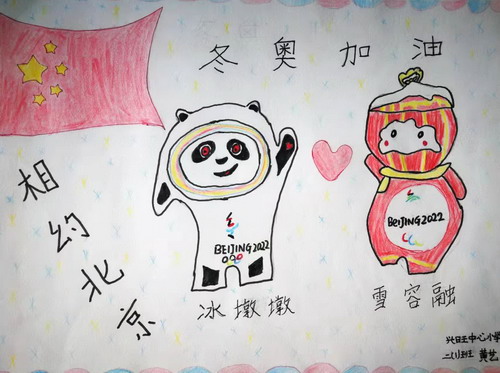 冬奥加油
相约北京
BEIJING 2022
BEIJING 2022
冰墩墩
雪容融
兴旺中心小学
二(1)班 黄艺